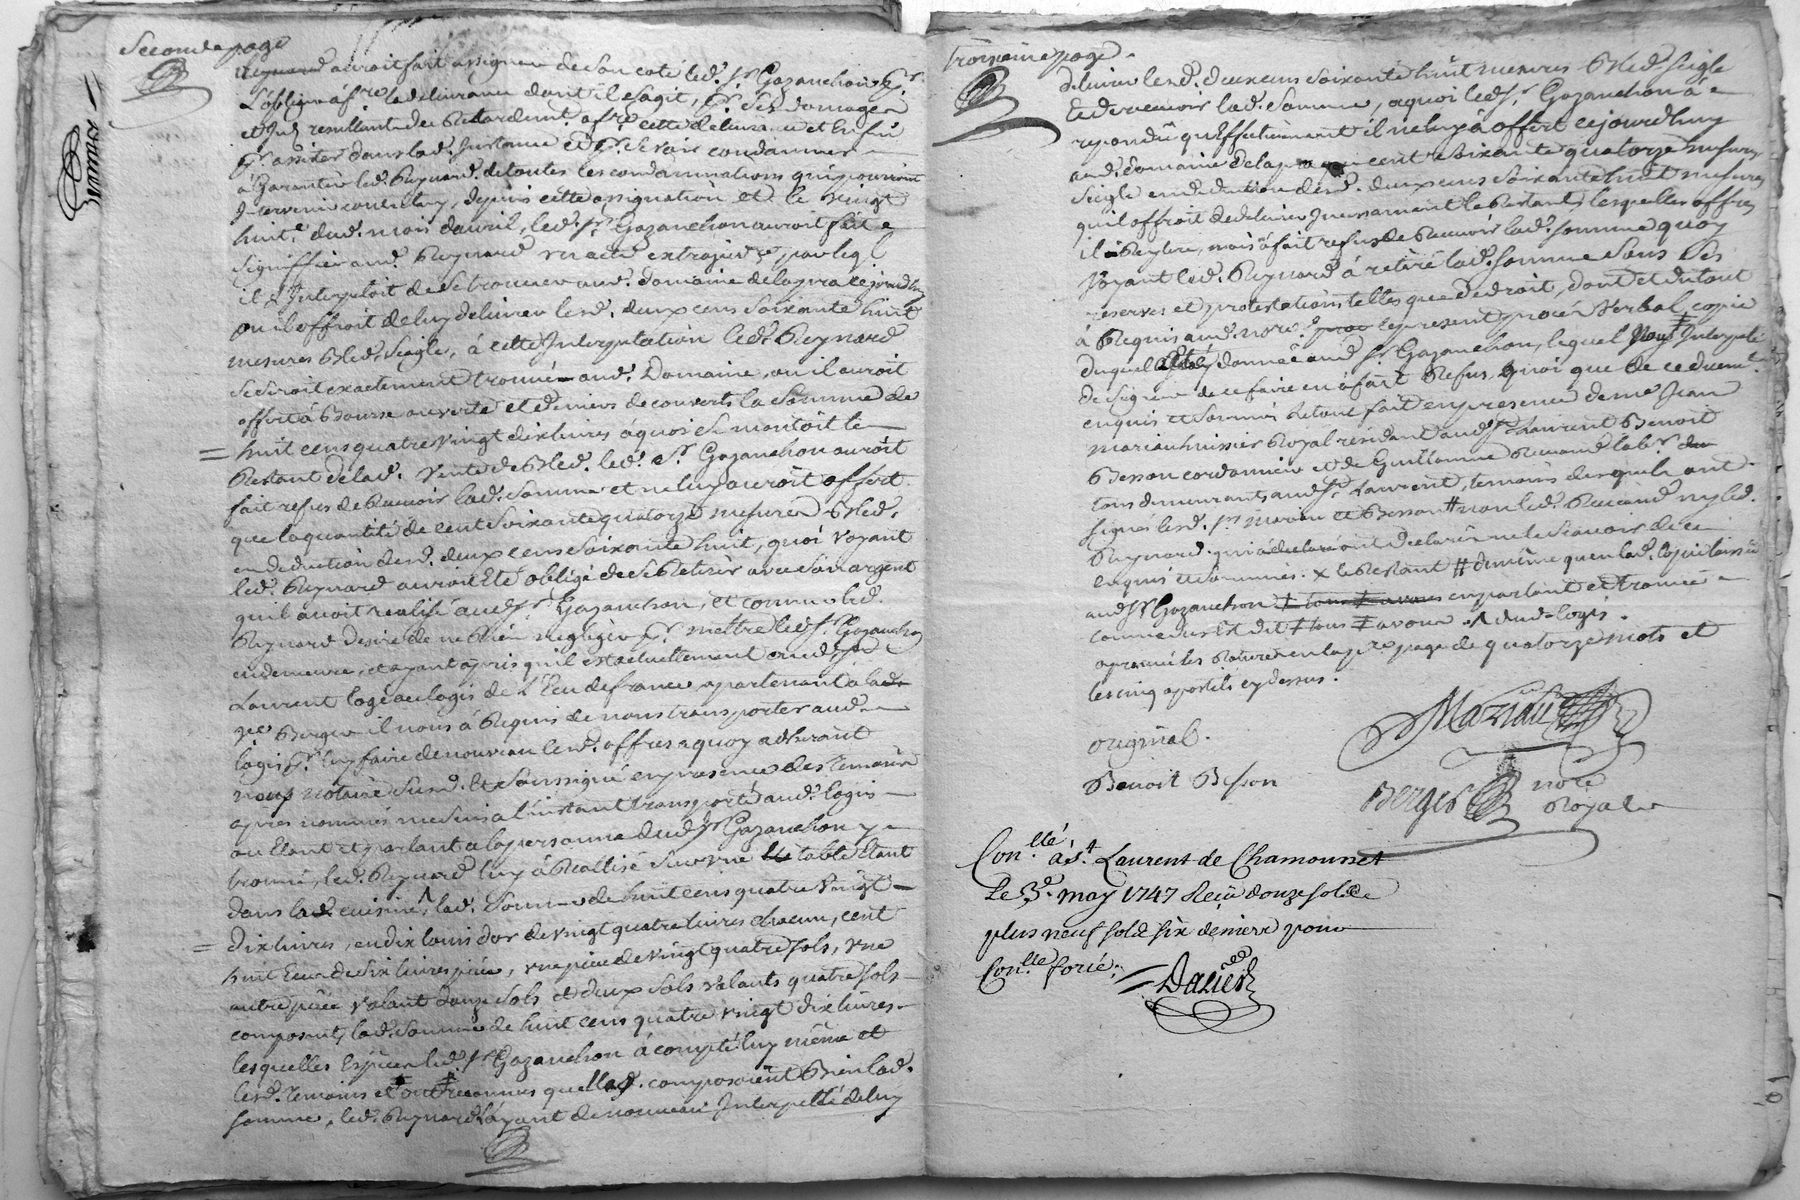 Seconde page
Reynard auroit fait assigner de son coté led. Sr. Gazanchon pr.
L'obliger à fre. la délivrance dont il s'agit, pr. ses domages
et Int. resultants du Retardemt. a fre. cette delivrance et
pr. assister dans lad. Instance et pr. se voir condamner
a Garantir led. Reynard de toutes les condamnations qui pourroient
Intervenir contre luy, depuis cette assignation et le vingt
huite. dud. mois d'avril, led. Sr. Gazanchon auroit fait
signiffier aud. Reynard un acte extrajudre. par leql.
il l'Interpeloit de se trouver aud. domaine de la pra cejourd'huy
ou il offroit de luy delivrer lesd. deux cens soixante huit
mesures Bled seigle, à cette Interpellation led. Reynard
se seroit exactement trouvé aud. Domaine, ou il auroit
offert à Bourse ouverte et deniers decouverts la somme de
= huit cens quatre vingt dix livres à quoi se montoit le
Restant de lad. vente de Bled. led. Sr. Gazanchon auroit
fait refus de Recevoir lad. somme et ne luy auroit offert
que la quantité de cent soixante quatorze mesures Bled,
en deduction desd. deux cens soixante huit, quoi voyant
led. Reynard auroit Eté obligé de se Retirer avec son argent
qu'il avoit realisé aud. Sr. Gazanchon, et comme led.
Reynard desire de ne Rien negliger pr. mettre led. Sr. Gazanchon
en demeure, et ayant apris qu'il est actuellement aud. St.
Laurent logé au logis de L'Ecu de france apartenant à
Berger il nous à Requis de nous transporter aud.
logis pr. luy faire de nouveau lesd. offres a quoy adherant
nous notaire susd. et soussigné en presence des temoins
apres nommés me suis a l'instant transporté aud. logis
ou Etant et parlant a la personne dud. Sr. Gazanchon y
trouvé, led. Reynard luy à Reallisé sur une table Etant
dans lad. cuisine, lad. somme de huit cens quatre vingt
= dix livres, en dix louis d'or de vingt quatre livres chacun, cent
huit Ecus de six livres piece, une piece de vingt quatre sols, une
autre piece valant douze sols et deux sols valants quatre sols
composant lad. somme de huit cens quatre vingt dix livres
lesquelles Especes led. Sr. Gazanchon à compté luy même et
lesd. temoins et ont reconnus quelles composoient Bien lad.
somme, led. Reynard l'ayant de nouveau Interpellé de luy
Troisieme page
delivrer lesd. deux cens soixante huit mesures Bled seigle
et de recevoir lad. somme, a quoi led. Sr. Gazanchon à
repondu qu'Effectivement il ne luy à offert cejourd'huy
aud. domaine de la pra que cent soixante quatorze mesures
seigle en deduction desd. deux cens soixante huit mesures
qu'il offroit de delivrer Incessament le Restant, lesquelles offres
il Reytere, mais à fait refus de Recevoir lad. somme quoy
voyant led. Reynard à retiré lad. somme sous ses
reserves et protestations telles que de droit, dont et du tout
à Requis aud. nore. le present procés Verbal, copie
duquel a Eté donnée aud. Sr. Gazanchon, lequel Interpellé
de signer de ce faire en à fait Refus quoi que de ce duemt.
enquis et sommé Letout fait en presence de me Jean
mariau huissier Royal residant aud. St. Laurent Benoit
Besson cordonnier et de Guillaume Renaud labr.
tous demeurants aud. St. Laurent, temoins lesquels ont
signé lesd. Srs mariau et Besson # non led. Renaud ny led.
Reynard qui à declaré ont declarés ne le scavoir de ce
enquis et sommés. x le Restant # de même qu'en lad. copie laissée
aud. Sr. Gazanchon en parlant et trouvé
comme dessus est dit tous avoué dud. logis.
aprouvé les Ratures en la pre. page de quatorze mots et
les cinq apostils cy dessus.
original.
Mariau
Benoit Besson
Berger nore
Royal
Conllé à St. Laurent de Chamousset
Le 3e. may 1747 Reçu douze sols
plus neuf sols six deniers pour
Conlle
Davier